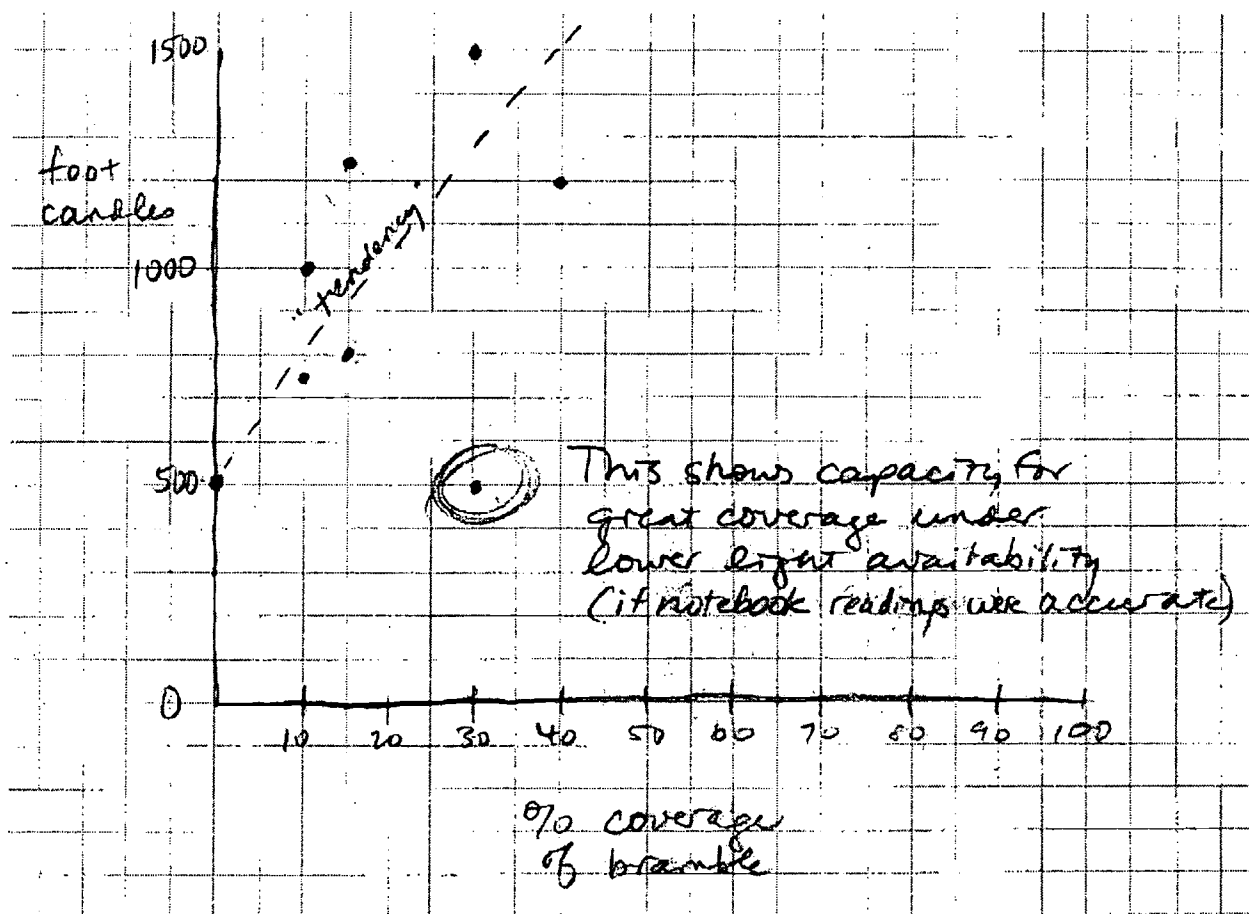 1500
foot
candles
1000
"tendency"
500
This shows capacity for
great coverage under
lower light availability
(if notebook readings were accurate)
0
10 20 30 40 50 60 70 80 90 100
% coverage
of bramble